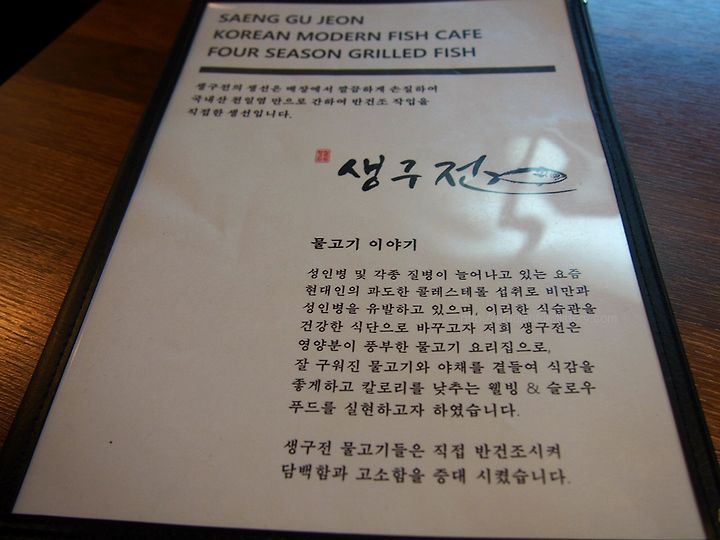 SAENG GU JEON
KOREAN MODERN FISH CAFE
FOUR SEASON GRILLED FISH
생구전의 생선은 매장에서 깔끔하게 손질하여
국내산 천일염 만으로 간하여 반건조 작업을
직접한 생선입니다.
생구전
물고기 이야기
성인병 및 각종 질병이 늘어나고 있는 요즘
현대인의 과도한 콜레스테롤 섭취로 비만과
성인병을 유발하고 있으며, 이러한 식습관을
건강한 식단으로 바꾸고자 저희 생구전은
영양분이 풍부한 물고기 요리집으로,
잘 구워진 물고기와 야채를 곁들여 식감을
좋게하고 칼로리를 낮추는 웰빙 & 슬로우
푸드를 실현하고자 하였습니다.
생구전 물고기들은 직접 반건조시켜
담백함과 고소함을 증대 시켰습니다.